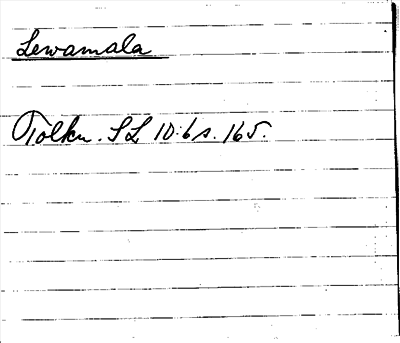 Lewamala
Tolkn. SL 10:6 s. 165.